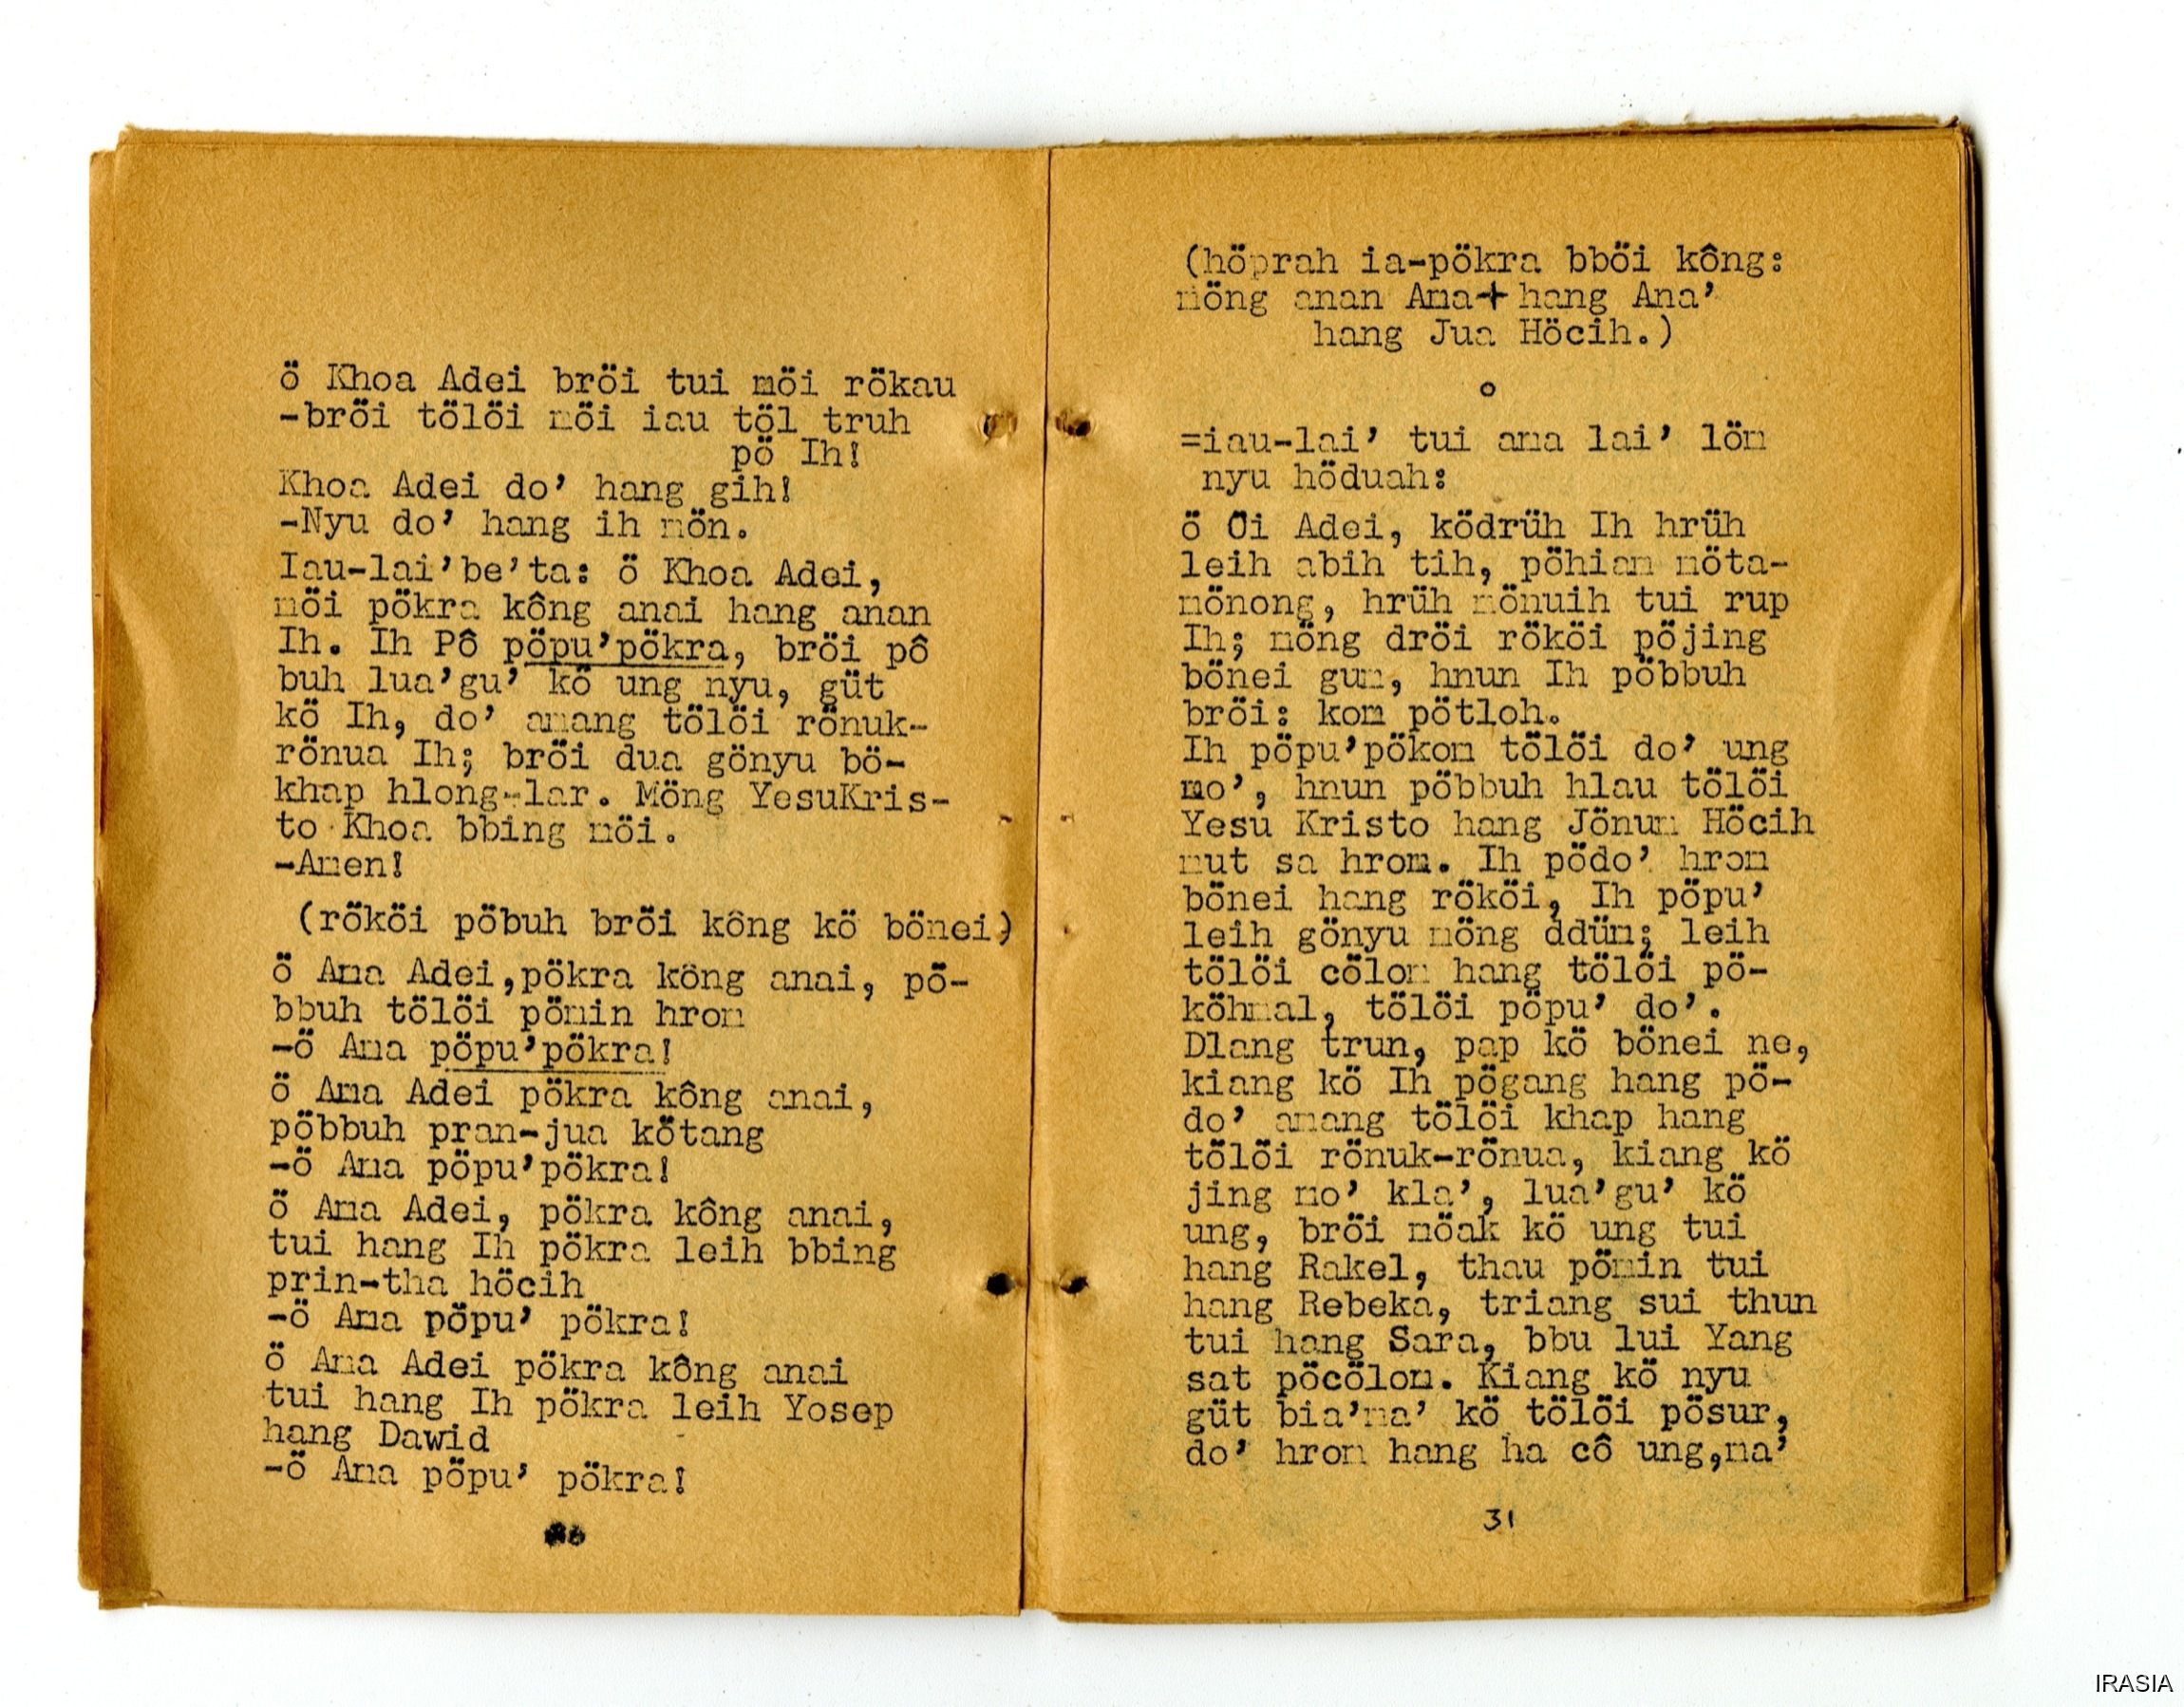 ö Khoa Adei bröi tui möi rökau
-bröi tölöi möi iau töl truh
pö Ih!
Khoa Adei do’ hang gih!
-Nyu do’ hang ih mön.
Iau-lai’be’ta: ö Khoa Adei,
möi pökra kông anai hang anan
Ih. Ih Pô pöpu’pökra, bröi pô
buh lua’gu’ kö ung nyu, güt
kö Ih, do’ amang tölöi rönuk-
rönua Ih; bröi dua gönyu bö-
khap hlong-lar. Möng YesuKris-
to Khoa bbing möi.
-Amen!
(rököi pöbuh bröi kông kö bönei)
ö Ama Adei,pökra kông anai, pö-
bbuh tölöi pömin hrom
-ö Ama pöpu’pökra!
ö Ama Adei pökra kông anai,
pöbbuh pran-jua kötang
-ö Ama pöpu’pökra!
ö Ama Adei, pökra kông anai,
tui hang Ih pökra leih bbing
prin-tha höcih
-ö Ama pöpu’ pökra!
ö Ama Adei pökra kông anai
tui hang Ih pökra leih Yosep
hang Dawid
-ö Ama pöpu’ pökra!
(höprah ia-pökra bböi kông:
möng anan Ama+hang Ana’
hang Jua Höcih.)
o
=iau-lai’ tui ana lai’ löm
nyu höduah:
ö Oi Adei, ködrüh Ih hrüh
leih abih tih, pöhiam möta-
mönong, hrüh mönuih tui rup
Ih; möng dröi rököi pöjing
bönei gum, hnun Ih pöbbuh
bröi: kom pötloh.
Ih pöpu’pökom tölöi do’ ung
mo’, hnun pöbbuh hlau tölöi
Yesu Kristo hang Jönum Höcih
mut sa hrom. Ih pödo’ hrom
bönei hang rököi, Ih pöpu’
leih gönyu möng ddüm; leih
tölöi cölom hang tölöi pö-
köhmal, tölöi pöpu’ do’.
Dlang trun, pap kö bönei ne,
kiang kö Ih pögang hang pö-
do’ amang tölöi khap hang
tölöi rönuk-rönua, kiang kö
jing mo’ kla’, lua’gu’ kö
ung, bröi möak kö ung tui
hang Rakel, thau pömin tui
hang Rebeka, triang sui thun
tui hang Sara, bbu lui Yang
sat pöcölom. Kiang kö nyu
güt bia’ma’ kö tölöi pösur,
do’ hrom hang ha cô ung,ma’
31
IRASIA